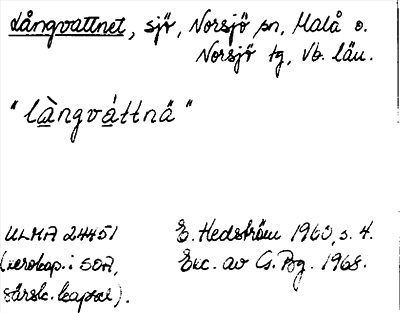 Långvattnet, sjö, Norsjö sn, Malå o.
Norsjö tg, Vb. län.
"là̱ngvá̱ttnä"
ULMA 24451 E. Hedström 1960, s. 4.
(xerokop. i SOA, Exc. av Cs. Bg. 1968.
särsk. kapsel).